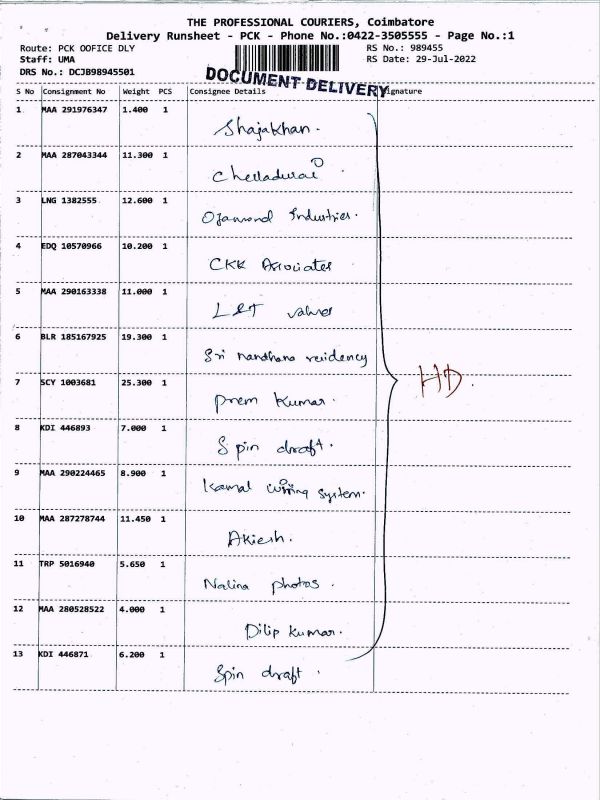 THE PROFESSIONAL COURIERS, Coimbatore
Delivery Runsheet - PCK - Phone No.:0422-3505555 - Page No.:1
Route: PCK OOFICE DLY RS No.: 989455
Staff: UMA RS Date: 29-Jul-2022
DRS No.: DCJB98945501
DOCUMENT DELIVERY
S No Consignment No Weight PCS Consignee Details Signature
1 MAA 291976347 1.400 1
Shajakhan.
2 MAA 287043344 11.300 1
Chelladurai.
3 LNG 1382555 12.600 1
Industries.
4 EDQ 10570966 10.200 1
CKK Associates
5 MAA 290163338 11.000 1
L&T valves
6 BLR 185167925 19.300 1
Sri nandhana residency
7 SCY 1003681 25.300 1
HD.
prem kumar.
8 KDI 446893 7.000 1
Spin draft.
9 MAA 290224465 8.900 1
Kamal wiring system.
10 MAA 287278744 11.450 1
Akiesh.
11 TRP 5016940 5.650 1
Nalina photos.
12 MAA 280528522 4.000 1
Dilip kumar.
13 KDI 446871 6.200 1
Spin draft.